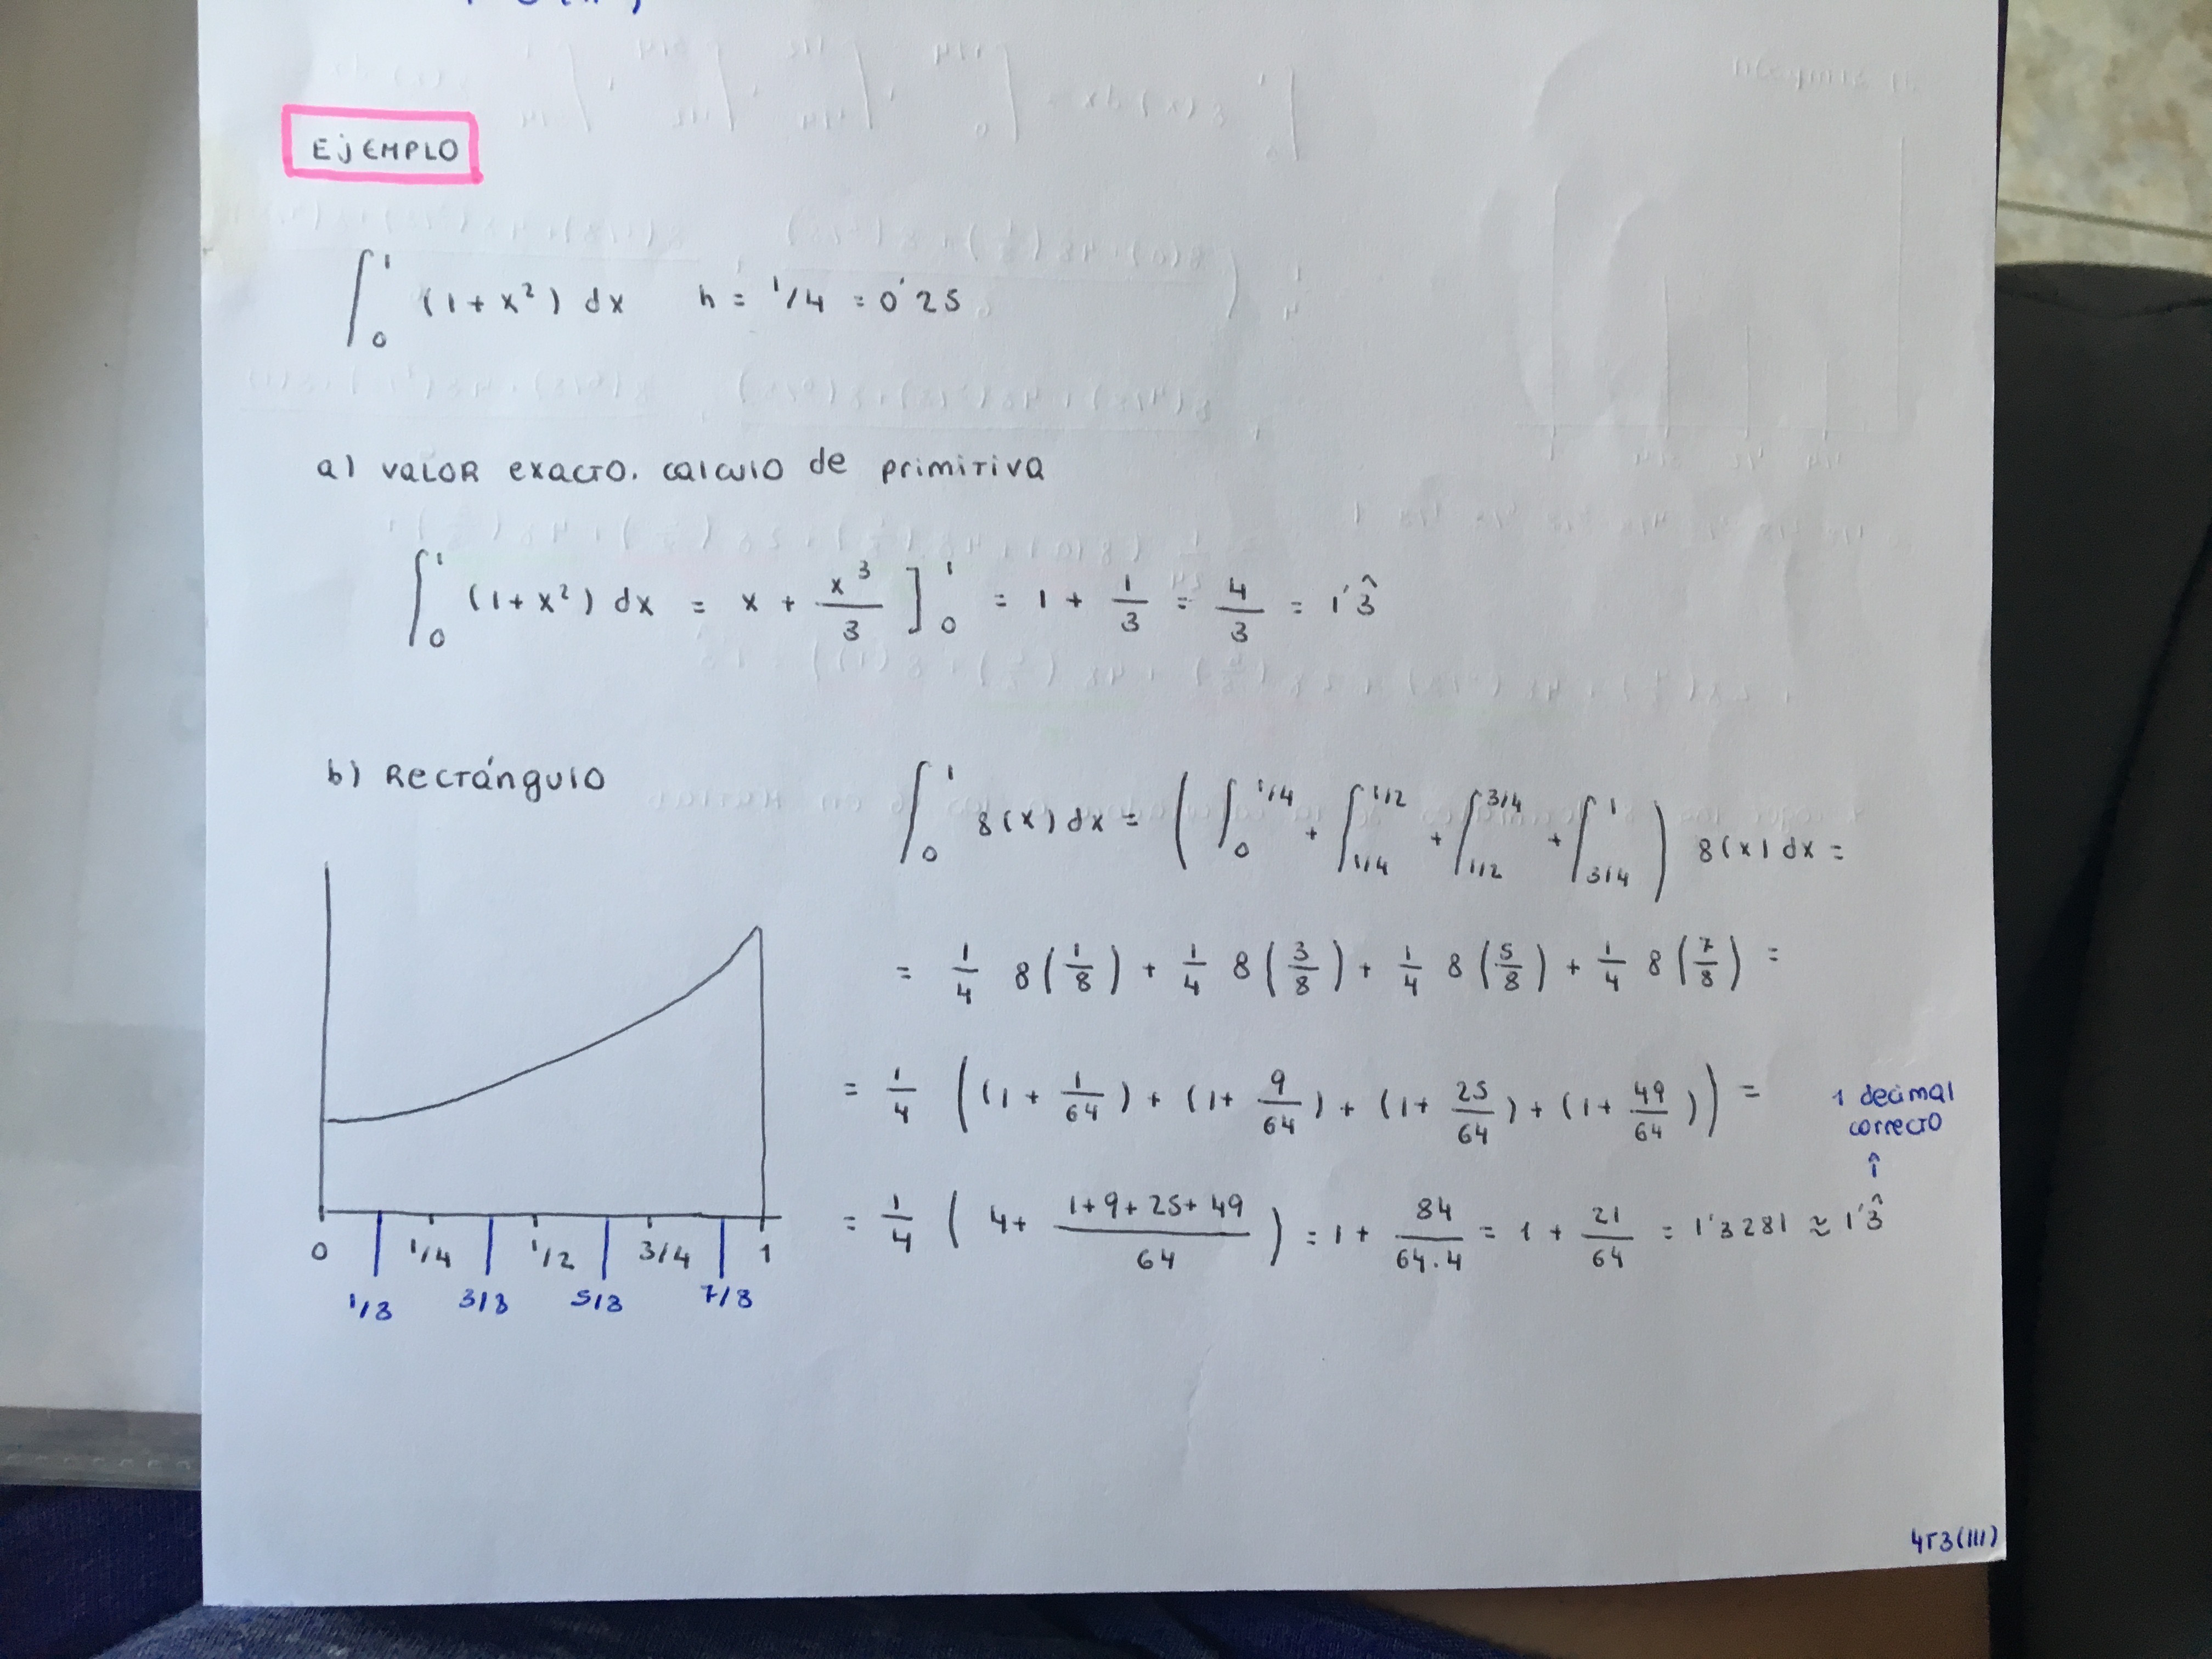 EJEMPLO
∫₀¹ (1+x²) dx   h = 1/4 = 0'25
a) VALOR EXACTO. CALCULO de PRIMITIVA
∫₀¹ (1+x²) dx = x + x³/3 ]₀¹ = 1 + 1/3 = 4/3 = 1'3̂
b) RECTÁNGULO
∫₀¹ f(x) dx = ( ∫₀^1/4 + ∫_1/4^1/2 + ∫_1/2^3/4 + ∫_3/4^1 ) f(x) dx =
= 1/4 f(1/8) + 1/4 f(3/8) + 1/4 f(5/8) + 1/4 f(7/8) =
= 1/4 ( (1 + 1/64) + (1 + 9/64) + (1 + 25/64) + (1 + 49/64) ) =
1 decimal
correcto
↑
= 1/4 ( 4 + (1+9+25+49)/64 ) = 1 + 84/(64·4) = 1 + 21/64 = 1'3281 ≈ 1'3̂
0 1/4 1/2 3/4 1
1/8 3/8 5/8 7/8
4T3(III)